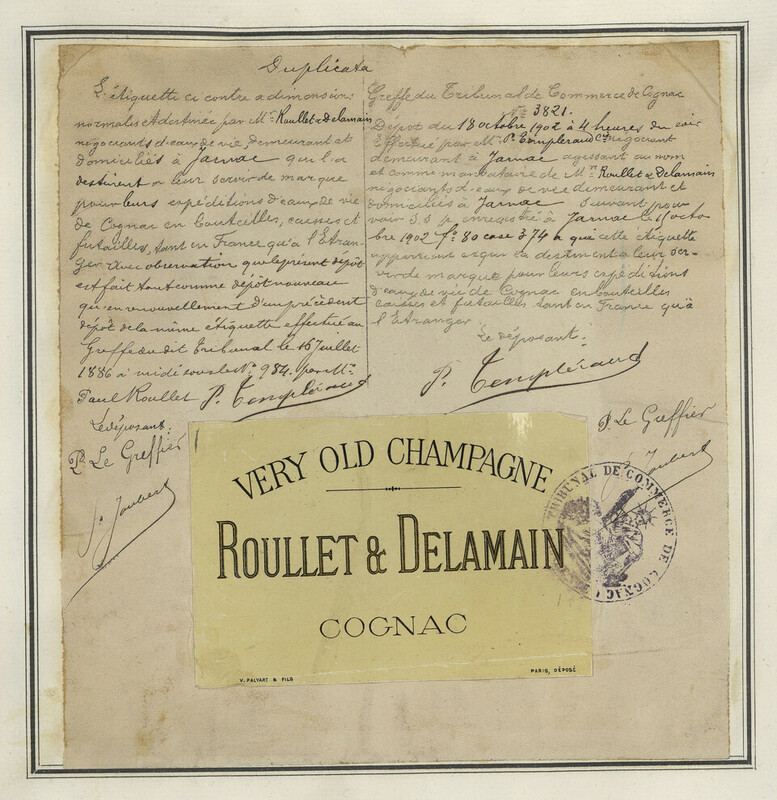 Duplicata
L'étiquette ci contre a dimensions
normales et destinée par Mrs Roullet & Delamain
négociants d'eaux de vie, demeurant et
domiciliés à Jarnac qui la
destinent a leur servir de marque
pour leurs expéditions d'eaux de vie
de Cognac en bouteilles, caisses et
futailles, tant en France qu'à l'Etran-
ger. Avec observation que le présent dépôt
est fait tout comme dépôt nouveau
qu'en renouvellement d'un précédent
dépôt de la même étiquette effectué au
Greffe du dit Tribunal le 16 Juillet
1886 à midi sous le No. 984. par Mr.
Paul Roullet P. Templéraud
Le déposant:
P. Le Greffier
P. Joubert
Greffe du Tribunal de Commerce de Cognac
No 3821.
Dépôt du 18 octobre 1902 à 4 heures du soir
Effectué par Mr. P. Templéraud négociant
demeurant à Jarnac agissant au nom
et comme mandataire de Mrs Roullet & Delamain
négociants d'eaux de vie demeurant et
domiciliés à Jarnac suivant pou-
voir S S p enregistré à Jarnac le octo-
bre 1902 fo. 80 case 374 a que cette étiquette
appartient et qu'ils destinent a leur ser-
vir de marque pour leurs expéditions
d'eaux de vie de Cognac en bouteilles
caisses et futailles tant en France qu'à
l'Etranger
Le déposant:
P. Templéraud
P. Le Greffier
P. Joubert
VERY OLD CHAMPAGNE
ROULLET & DELAMAIN
COGNAC
V. PALYART & FILS
PARIS, DÉPOSÉ
TRIBUNAL DE COMMERCE DE COGNAC